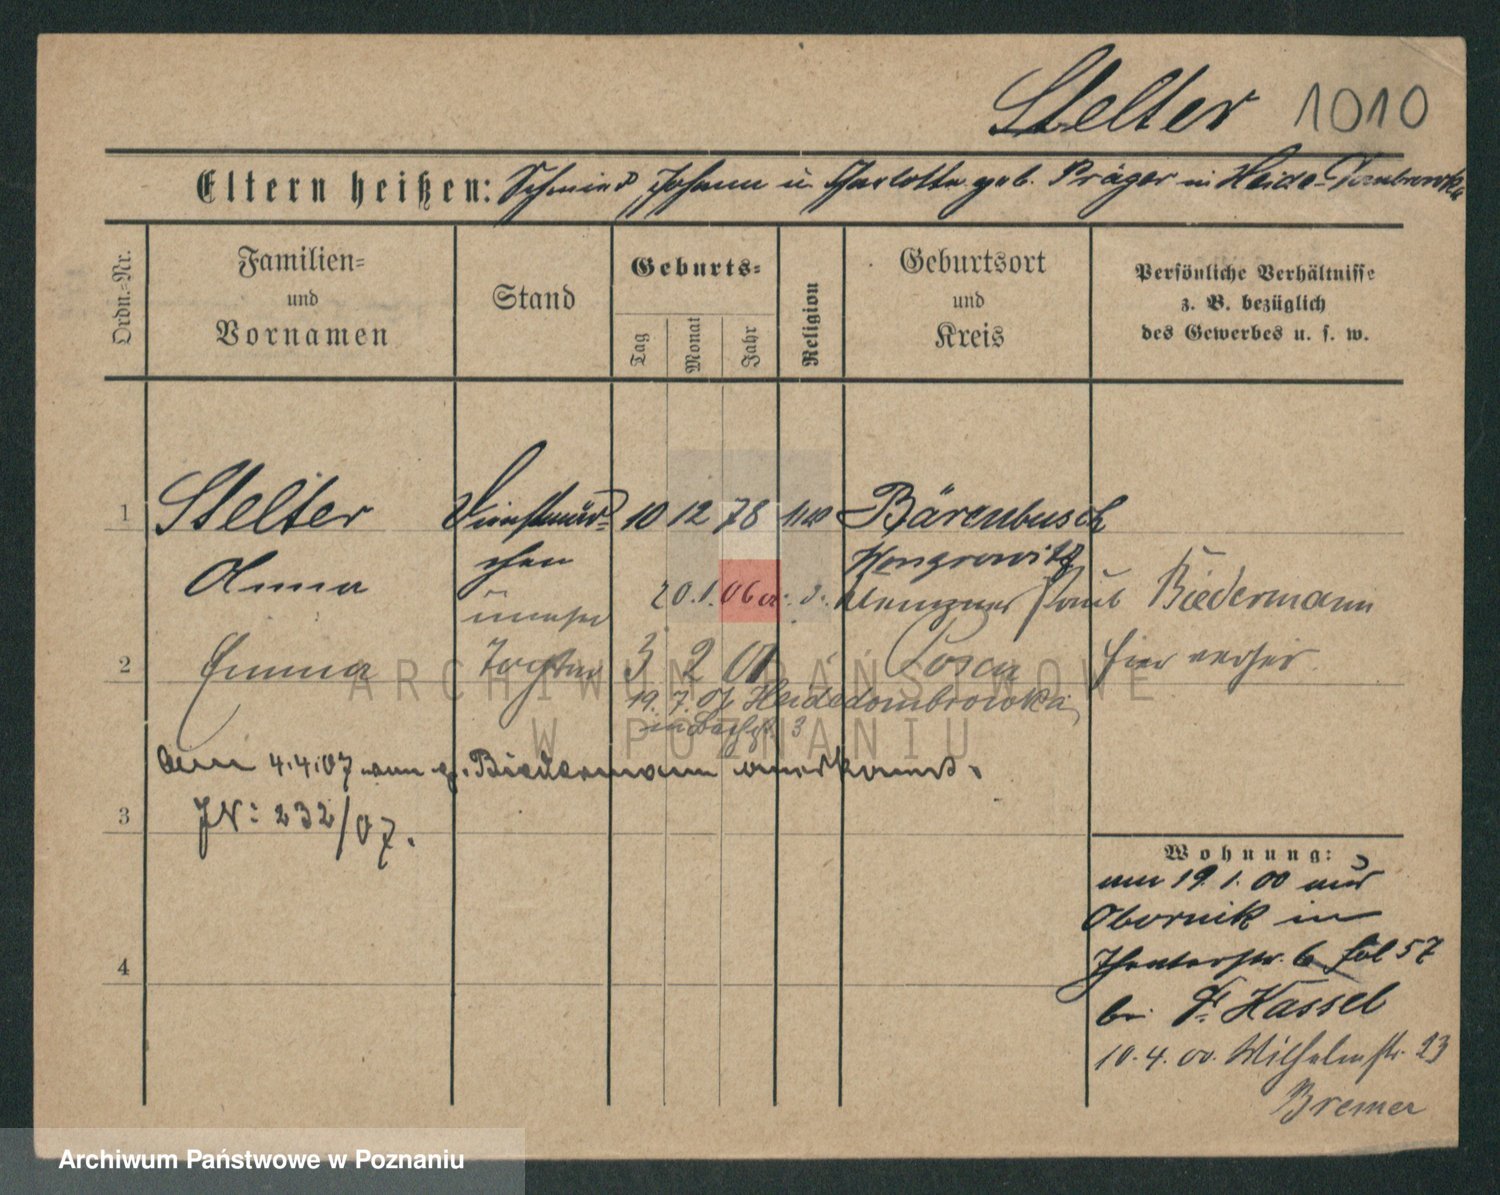 Stelter 1010
Eltern heißen: Schmied Johann u. Charlotte geb. Präger in Heide-Dombrowka
Ordn.-Nr.
Familien=
und
Vornamen
Stand
Geburts=
Tag
Monat
Jahr
Religion
Geburtsort
und
Kreis
Persönliche Verhältnisse
z. B. bezüglich
des Gewerbes u. s. w.
1 Stelter Dienstmäd- 10 12 78 Bärenbusch
Anna chen Wongrowitz
20.1.06 Klempner Paul Biedermann
2 Emma Tochter 3 2 01 Posen
19.7.07 Heidedombrowka
am 4.4.07 vom p. Biedermann anerkannt.
JN: 232/07.
3
4
Wohnung:
am 19.1.00 aus
Obornik in
Theaterstr. 6 fol 57
bei Fr. Hassel
10.4.00. Wilhelmstr. 23
Bremer
ARCHIWUM PAŃSTWOWE
W POZNANIU
Archiwum Państwowe w Poznaniu